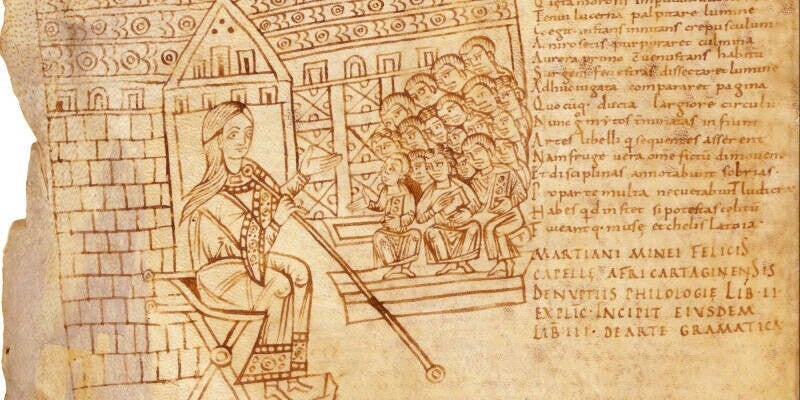 Tenui lucerna palpitare lumine
Coegit instans innitans crepusculum
Acni rosetis purpuraret culmina
Aurora primo
Surgens dissectaret lumine
Adhuc iugata compararet pagina
Quocuq; ducta largiore circulu
Nunc infiunt
Artes libelli q sequentes asserent
Namfruge uera ome fictu dimouent
Et disciplinas annotabunt sobrias
Proparte multa necuetabunt ludicra
Habes qd instet sipotestas celitu
Faueant q; muse etchelis latoia
MARTIANI MINEI FELICIS
CAPELLE AFRI CARTAGINENSIS
DENUPTIIS PHILOLOGIE LIB · II
EXPLIC · INCIPIT EIUSDEM
LIB · III · DEARTE GRAMATICA